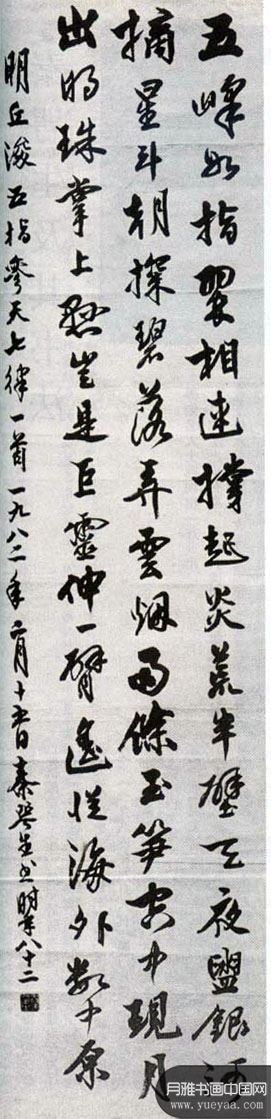 五峰如指翠相连撑起炎荒半壁天夜盥银河
摘星斗朝探碧落弄雲烟雨馀玉笋空中现月
出明珠掌上悬岂是巨靈伸一臂遥從海外数中原
明丘濬五指参天七律一首一九八二年二月十五日秦咢生书时年八十二
月雅书画中国网
www.yueyaa.com